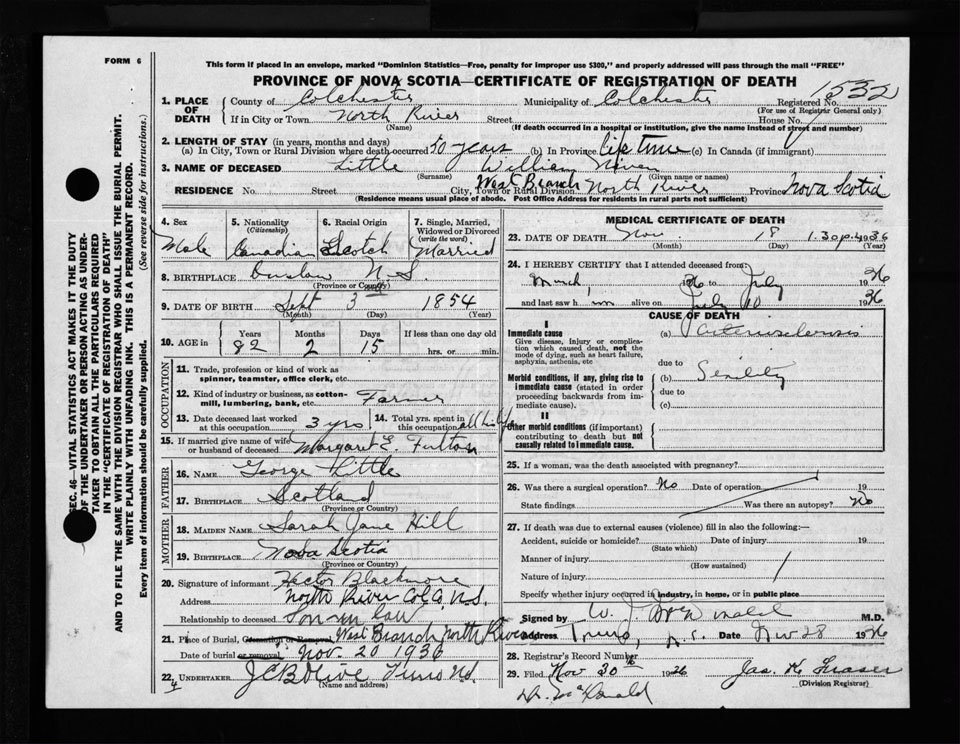 FORM 6
This form if placed in an envelope, marked "Dominion Statistics—Free, penalty for improper use $300," and properly addressed will pass through the mail "FREE"
PROVINCE OF NOVA SCOTIA—CERTIFICATE OF REGISTRATION OF DEATH
1532
1. PLACE OF DEATH County of Colchester Municipality of Colchester Registered No.
(For use of Registrar General only)
If in City or Town North River Street House No.
(Name) (If death occurred in a hospital or institution, give the name instead of street and number)
2. LENGTH OF STAY (in years, months and days)
(a) In City, Town or Rural Division where death occurred 50 years (b) In Province Life time (c) In Canada (if immigrant)
3. NAME OF DECEASED Little William
(Surname) (Given name or names)
RESIDENCE No. Street City, Town or Rural Division West Branch North River Province Nova Scotia
(Residence means usual place of abode. Post Office Address for residents in rural parts not sufficient)
4. Sex 5. Nationality (Citizenship) 6. Racial Origin 7. Single, Married, Widowed or Divorced (write the word)
Male Canadian Scotch Married
8. BIRTHPLACE Onslow N.S.
(Province or Country)
9. DATE OF BIRTH Sept 3 1854
(Month) (Day) (Year)
10. AGE in Years Months Days If less than one day old
82 2 15 hrs. or min.
OCCUPATION
11. Trade, profession or kind of work as spinner, teamster, office clerk, etc.
12. Kind of industry or business, as cotton-mill, lumbering, bank, etc. Farmer
13. Date deceased last worked at this occupation 3 yrs 14. Total yrs. spent in this occupation all his life
15. If married give name of wife or husband of deceased Margaret E. Fulton
FATHER
16. NAME George Little
17. BIRTHPLACE Scotland
(Province or Country)
MOTHER
18. MAIDEN NAME Sarah Jane Hill
19. BIRTHPLACE Nova Scotia
(Province or Country)
20. Signature of informant Hector Blackmore
Address North River Col Co. N.S.
Relationship to deceased Son in law
21. Place of Burial, Cremation or Removal West Branch North River
Date of burial or removal Nov. 20 1936
22. UNDERTAKER J C B Olive Truro N.S.
(Name and address)
4
MEDICAL CERTIFICATE OF DEATH
23. DATE OF DEATH Nov. 18 1.30 p.m. 1936
(Month) (Day) (Year)
24. I HEREBY CERTIFY that I attended deceased from
March, 1936 to July 1936
and last saw him alive on July 10 1936
CAUSE OF DEATH
I
Immediate cause (a) Arteriosclerosis
Give disease, injury or complication which caused death, not the mode of dying, such as heart failure, asphyxia, asthenia, etc due to
Morbid conditions, if any, giving rise to immediate cause (stated in order proceeding backwards from immediate cause). (b) Senility
due to
(c)
II
Other morbid conditions (if important) contributing to death but not causally related to immediate cause.
25. If a woman, was the death associated with pregnancy?
26. Was there a surgical operation? No Date of operation 19
State findings Was there an autopsy? No
27. If death was due to external causes (violence) fill in also the following:—
Accident, suicide or homicide? Date of injury 19
(State which)
Manner of injury
(How sustained)
Nature of injury
Specify whether injury occurred in industry, in home, or in public place
Signed by W. J. McDonald M.D.
Address Truro, N.S. Date Nov 28 1936
28. Registrar's Record Number
29. Filed Nov 30th 1936 Jas. K. Fraser
(Division Registrar)
Dr. McDonald
SEC. 46—VITAL STATISTICS ACT MAKES IT THE DUTY
OF THE UNDERTAKER OR PERSON ACTING AS UNDERTAKER TO OBTAIN ALL THE PARTICULARS REQUIRED
IN THE "CERTIFICATE OF REGISTRATION OF DEATH"
AND TO FILE THE SAME WITH THE DIVISION REGISTRAR WHO SHALL ISSUE THE BURIAL PERMIT.
WRITE PLAINLY WITH UNFADING INK. THIS IS A PERMANENT RECORD.
Every item of information should be carefully supplied. (See reverse side for instructions.)